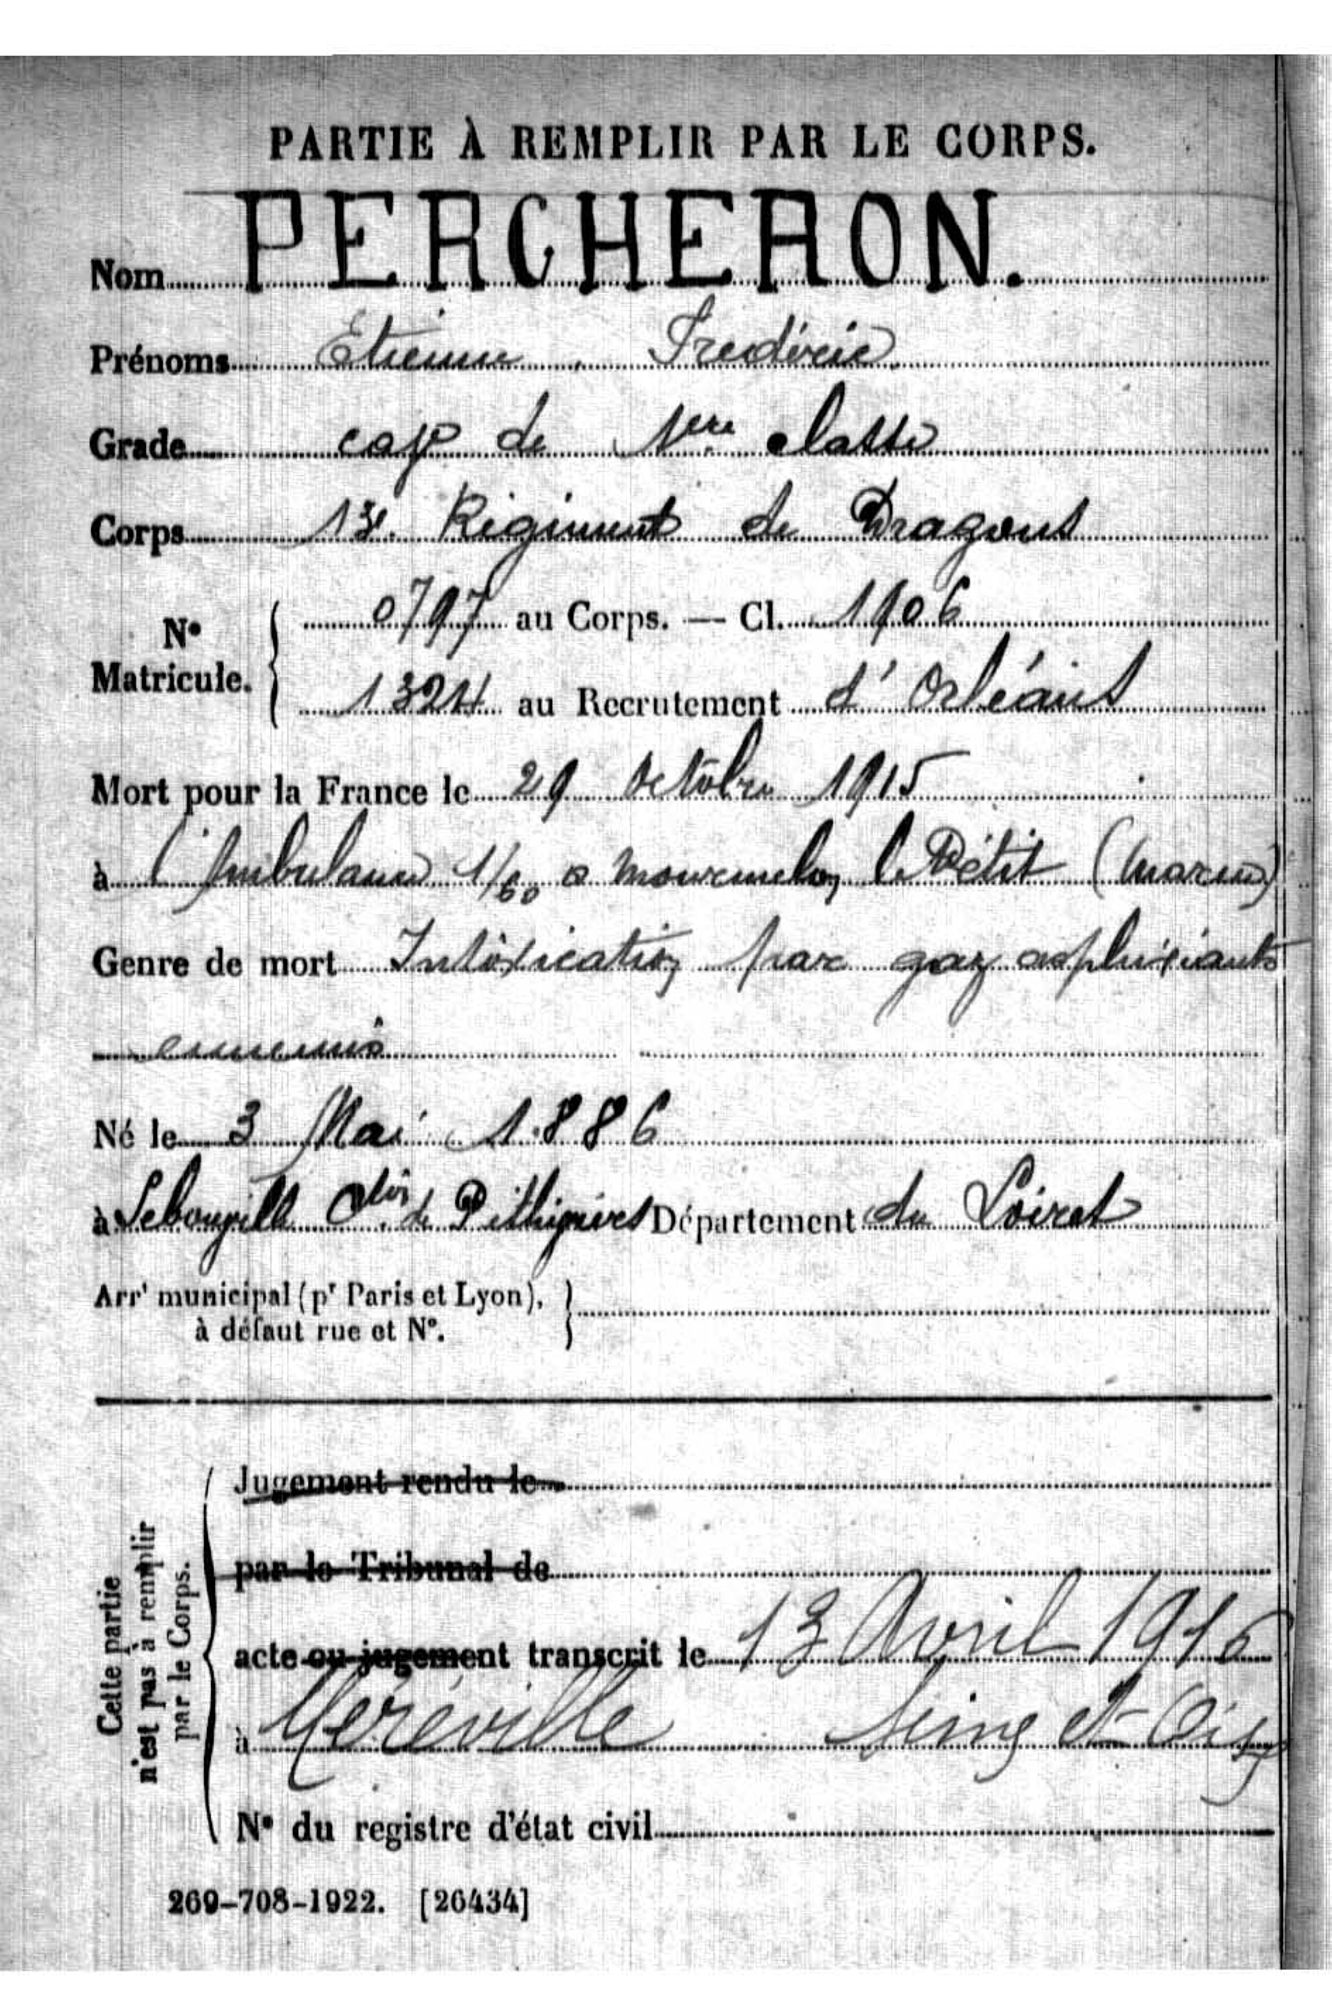 PARTIE À REMPLIR PAR LE CORPS.
Nom PERCHERON.
Prénoms Etienne, Frédéric
Grade cap de 1ère classe
Corps 13e Régiment de Dragons
N° Matricule. 0797 au Corps. — Cl. 1906
1324 au Recrutement d'Orléans
Mort pour la France le 29 Octobre 1915
à l'Ambulance 1/60 a Mourmelon le Pétit (Marne)
Genre de mort Intoxication par gaz asphixiants
ennemis
Né le 3 Mai 1886
à Sebouville de Pithiviers Département du Loiret
Arrt municipal (pr Paris et Lyon),
à défaut rue et N°.
Cette partie
n'est pas à remplir
par le Corps.
Jugement rendu le
par le Tribunal de
acte ou jugement transcrit le 13 Avril 1916
à Méréville Seine et Oise
N° du registre d'état civil
269-708-1922. [26434]